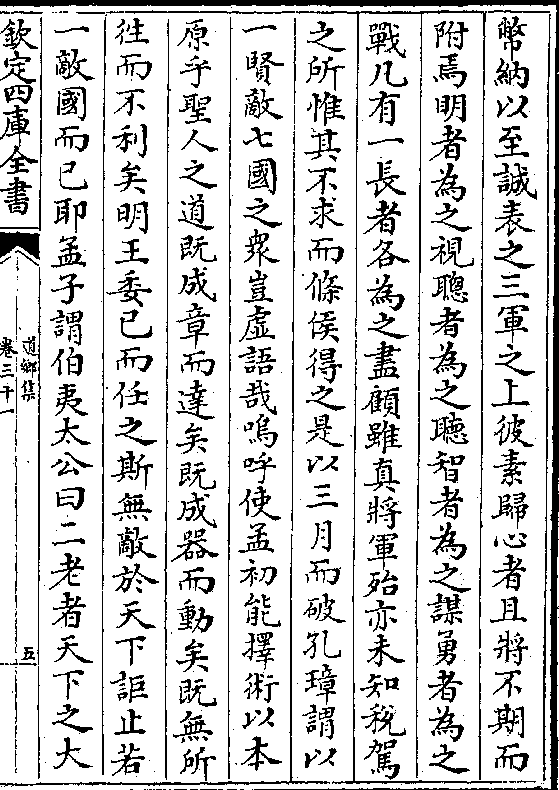 幣納以至誠表之三軍之上彼素歸心者且將不期而
附焉明者為之視聰者為之聽智者為之謀勇者為之
戰凡有一長者各為之盡顧雖真將軍殆亦未知稅駕
之所惟其不求而條侯得之是以三月而破孔璋謂以
一賢敵七國之衆豈虛語哉嗚呼使孟初能擇術以本
原乎聖人之道既成章而達矣既成器而動矣既無所
往而不利矣明王委已而任之斯無敵於天下詎止若
一敵國而已耶孟子謂伯夷太公曰二老者天下之大
欽定四庫全書
道鄉集
卷三十一
五